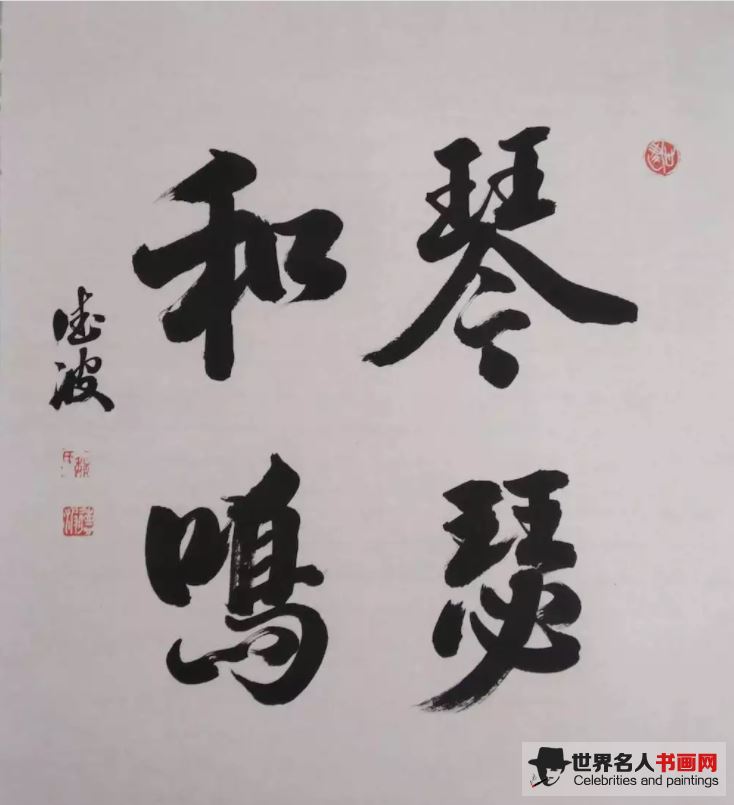 琴瑟
和鸣
德波
世界名人书画网
Celebrities and paintings